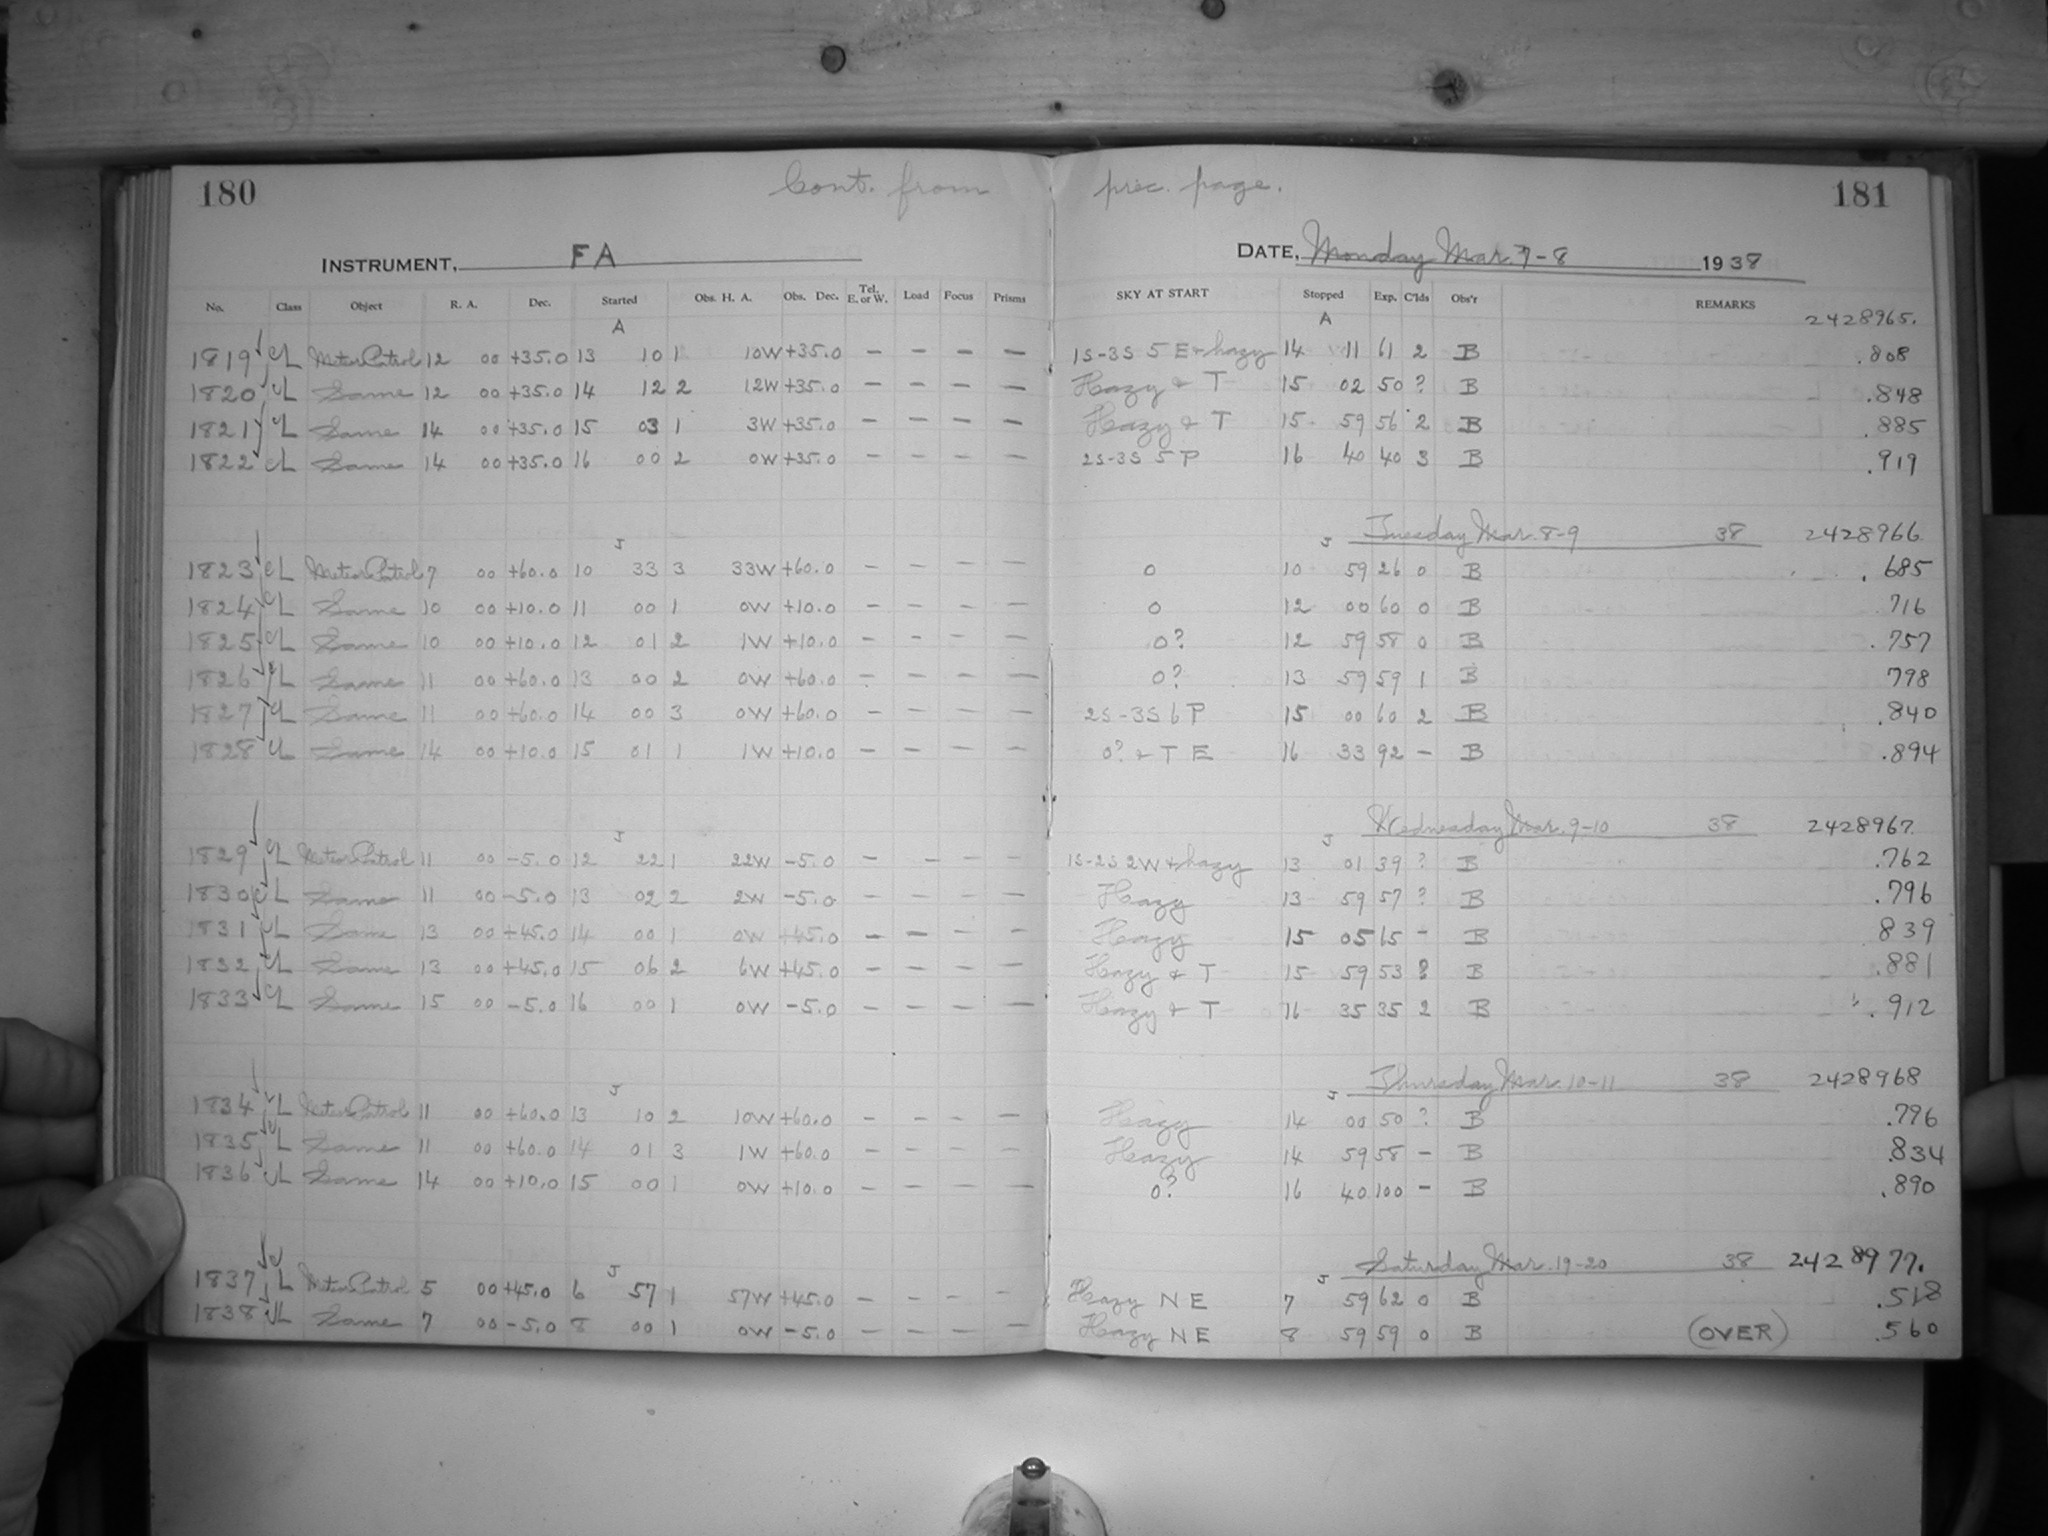 180 Cont. from prec. page. 181
INSTRUMENT, FA DATE, Monday Mar. 7-8 1938
No. Class Object R. A. Dec. Started Obs. H. A. Obs. Dec. Tel. E. or W. Load Focus Prisms SKY AT START Stopped Exp. C'lds Obs'r REMARKS
A A 2428965.
1819 CL Meteor Patrol 12 00 +35.0 13 10 1 10W +35.0 — — — — 1S-3S 5 E + hazy 14 11 61 2 B .808
1820 CL Same 12 00 +35.0 14 12 2 12W +35.0 — — — — Hazy + T 15 02 50 ? B .848
1821 CL Same 14 00 +35.0 15 03 1 3W +35.0 — — — — Hazy + T 15 59 56 2 B .885
1822 CL Same 14 00 +35.0 16 00 2 0W +35.0 — — — — 2S-3S 5 P 16 40 40 3 B .919
J J Tuesday Mar. 8-9 38 2428966
1823 CL Meteor Patrol 7 00 +60.0 10 33 3 33W +60.0 — — — — 0 10 59 26 0 B .685
1824 CL Same 10 00 +10.0 11 00 1 0W +10.0 — — — — 0 12 00 60 0 B 716
1825 CL Same 10 00 +10.0 12 01 2 1W +10.0 — — — — 0? 12 59 58 0 B .757
1826 CL Same 11 00 +60.0 13 00 2 0W +60.0 — — — — 0? 13 59 59 1 B 798
1827 CL Same 11 00 +60.0 14 00 3 0W +60.0 — — — — 2S-3S 6 P 15 00 60 2 B .840
1828 CL Same 14 00 +10.0 15 01 1 1W +10.0 — — — — 0? + T E 16 33 92 — B .894
J J Wednesday Mar. 9-10 38 2428967.
1829 CL Meteor Patrol 11 00 -5.0 12 22 1 22W -5.0 — — — — 1S-2S 2W + hazy 13 01 39 ? B .762
1830 CL Same 11 00 -5.0 13 02 2 2W -5.0 — — — — Hazy 13 59 57 ? B .796
1831 CL Same 13 00 +45.0 14 00 1 0W +45.0 — — — — Hazy 15 05 65 — B 839
1832 CL Same 13 00 +45.0 15 06 2 6W +45.0 — — — — Hazy + T 15 59 53 ? B .881
1833 CL Same 15 00 -5.0 16 00 1 0W -5.0 — — — — Hazy + T 16 35 35 2 B .912
J J Thursday Mar. 10-11 38 2428968
1834 CL Meteor Patrol 11 00 +60.0 13 10 2 10W +60.0 — — — — Hazy 14 00 50 ? B .796
1835 CL Same 11 00 +60.0 14 01 3 1W +60.0 — — — — Hazy 14 59 58 — B .834
1836 CL Same 14 00 +10.0 15 00 1 0W +10.0 — — — — 0? 16 40 100 — B .890
J J Saturday Mar. 19-20 38 2428977.
1837 CL Meteor Patrol 5 00 +45.0 6 57 1 57W +45.0 — — — — Hazy NE 7 59 62 0 B .518
1838 CL Same 7 00 -5.0 8 00 1 0W -5.0 — — — — Hazy NE 8 59 59 0 B (OVER) .560